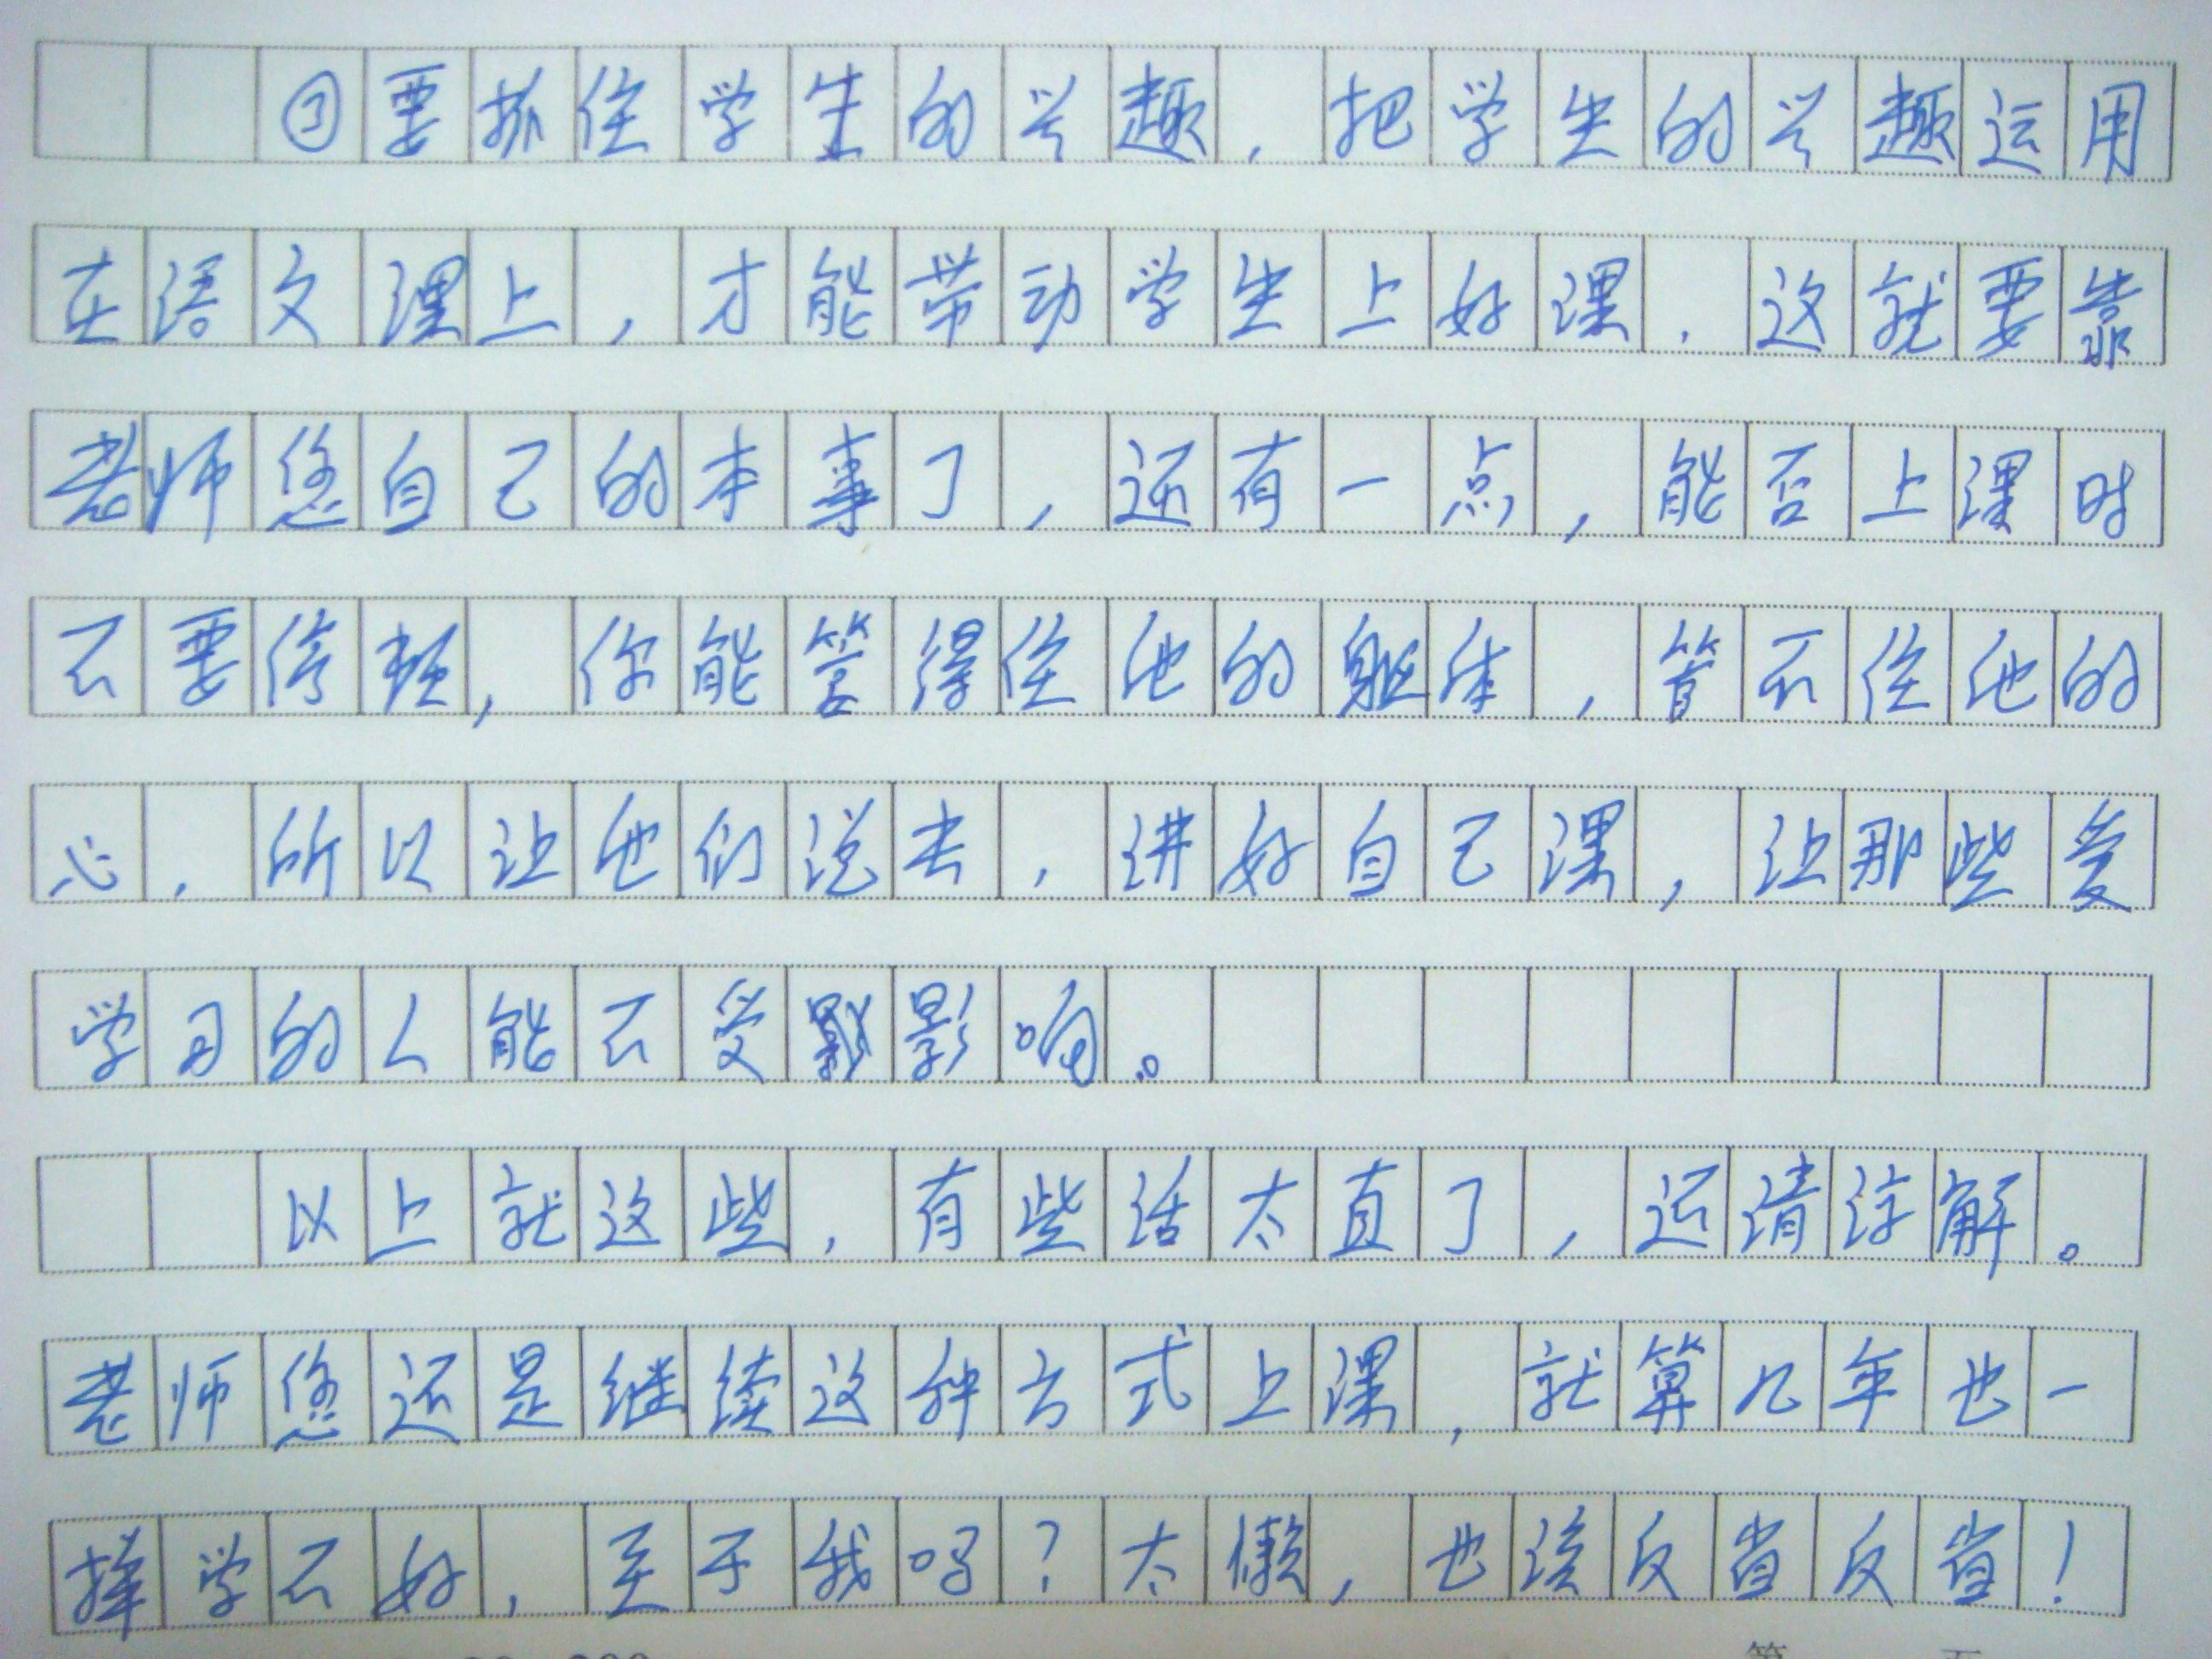 ①要抓住学生的兴趣，把学生的兴趣运用
在语文课上，才能带动学生上好课，这就要靠
老师您自己的本事了，还有一点，能否上课时
不要停顿，你能管得住他的躯体，管不住他的
心，所以让他们说去，讲好自己课，让那些爱
学习的人能不受影响。
以上就这些，有些话太直了，还请谅解。
老师您还是继续这种方式上课，就算几年也一
样学不好，至于我吗？太懒，也该反省反省！